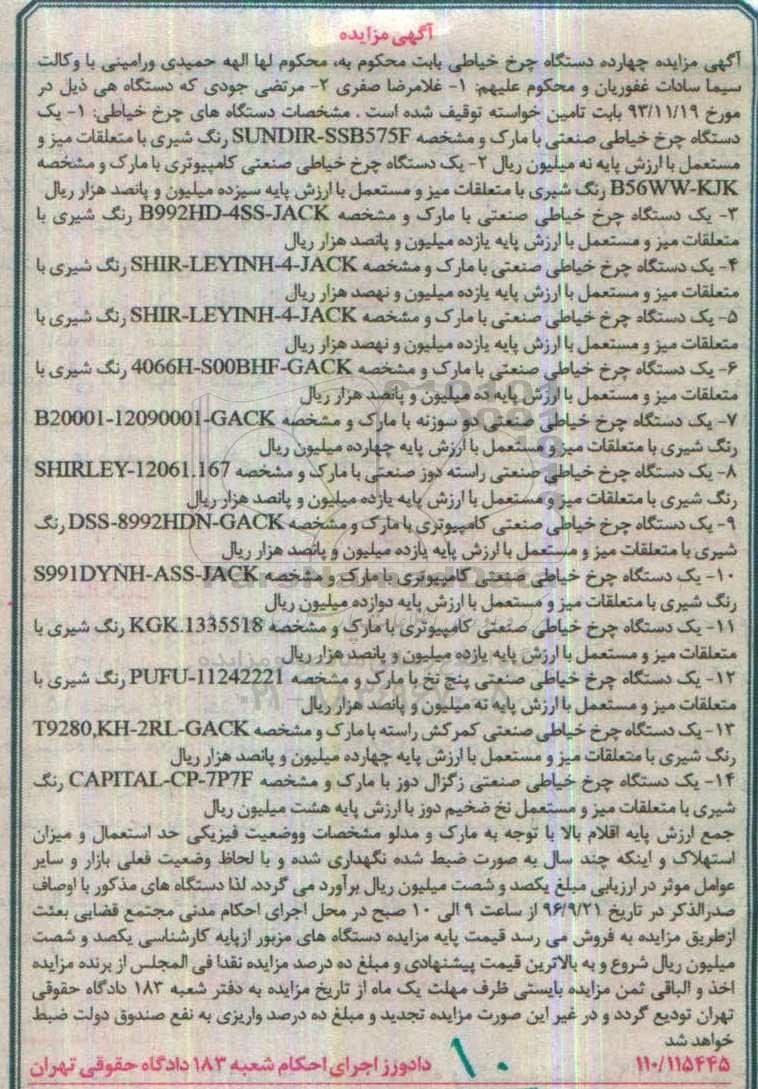 آگهی مزایده
آگهی مزایده چهارده دستگاه چرخ خیاطی بابت محکوم به، محکوم لها الهه حمیدی ورامینی با وکالت
سیما سادات غفوریان و محکوم علیهم: ۱- غلامرضا صفری ۲- مرتضی جودی که دستگاه هی ذیل در
مورخ ۹۳/۱۱/۱۹ بابت تامین خواسته توقیف شده است . مشخصات دستگاه های چرخ خیاطی: ۱- یک
دستگاه چرخ خیاطی صنعتی با مارک و مشخصه SUNDIR-SSB575F رنگ شیری با متعلقات میز و
مستعمل با ارزش پایه نه میلیون ریال ۲- یک دستگاه چرخ خیاطی صنعتی کامپیوتری با مارک و مشخصه
B56WW-KJK رنگ شیری با متعلقات میز و مستعمل با ارزش پایه سیزده میلیون و پانصد هزار ریال
۳- یک دستگاه چرخ خیاطی صنعتی با مارک و مشخصه B992HD-4SS-JACK رنگ شیری با
متعلقات میز و مستعمل با ارزش پایه یازده میلیون و پانصد هزار ریال
۴- یک دستگاه چرخ خیاطی صنعتی با مارک و مشخصه SHIR-LEYINH-4-JACK رنگ شیری با
متعلقات میز و مستعمل با ارزش پایه یازده میلیون و نهصد هزار ریال
۵- یک دستگاه چرخ خیاطی صنعتی با مارک و مشخصه SHIR-LEYINH-4-JACK رنگ شیری با
متعلقات میز و مستعمل با ارزش پایه یازده میلیون و نهصد هزار ریال
۶- یک دستگاه چرخ خیاطی صنعتی با مارک و مشخصه 4066H-S00BHF-GACK رنگ شیری با
متعلقات میز و مستعمل با ارزش پایه ده میلیون و پانصد هزار ریال
۷- یک دستگاه چرخ خیاطی صنعتی دو سوزنه با مارک و مشخصه B20001-12090001-GACK
رنگ شیری با متعلقات میز و مستعمل با ارزش پایه چهارده میلیون ریال
۸- یک دستگاه چرخ خیاطی صنعتی راسته دوز صنعتی با مارک و مشخصه SHIRLEY-12061.167
رنگ شیری با متعلقات میز و مستعمل با ارزش پایه یازده میلیون و پانصد هزار ریال
۹- یک دستگاه چرخ خیاطی صنعتی کامپیوتری با مارک و مشخصه DSS-8992HDN-GACK رنگ
شیری با متعلقات میز و مستعمل با ارزش پایه یازده میلیون و پانصد هزار ریال
۱۰- یک دستگاه چرخ خیاطی صنعتی کامپیوتری با مارک و مشخصه S991DYNH-ASS-JACK
رنگ شیری با متعلقات میز و مستعمل با ارزش پایه دوازده میلیون ریال
۱۱- یک دستگاه چرخ خیاطی صنعتی کامپیوتری با مارک و مشخصه KGK.1335518 رنگ شیری با
متعلقات میز و مستعمل با ارزش پایه یازده میلیون و پانصد هزار ریال
۱۲- یک دستگاه چرخ خیاطی صنعتی پنج نخ با مارک و مشخصه PUFU-11242221 رنگ شیری با
متعلقات میز و مستعمل با ارزش پایه نه میلیون و پانصد هزار ریال
۱۳- یک دستگاه چرخ خیاطی صنعتی کمرکش راسته با مارک و مشخصه T9280,KH-2RL-GACK
رنگ شیری با متعلقات میز و مستعمل با ارزش پایه چهارده میلیون و پانصد هزار ریال
۱۴- یک دستگاه چرخ خیاطی صنعتی زگزال دوز با مارک و مشخصه CAPITAL-CP-7P7F رنگ
شیری با متعلقات میز و مستعمل نخ ضخیم دوز با ارزش پایه هشت میلیون ریال
جمع ارزش پایه اقلام بالا با توجه به مارک و مدلو مشخصات ووضعیت فیزیکی حد استعمال و میزان
استهلاک و اینکه چند سال به صورت ضبط شده نگهداری شده و با لحاظ وضعیت فعلی بازار و سایر
عوامل موثر در ارزیابی مبلغ یکصد و شصت میلیون ریال برآورد می گردد، لذا دستگاه های مذکور با اوصاف
صدرالذکر در تاریخ ۹۶/۹/۲۱ از ساعت ۹ الی ۱۰ صبح در محل اجرای احکام مدنی مجتمع قضایی بعثت
ازطریق مزایده به فروش می رسد قیمت پایه مزایده دستگاه های مزبور ازپایه کارشناسی یکصد و شصت
میلیون ریال شروع و به بالاترین قیمت پیشنهادی و مبلغ ده درصد مزایده نقدا فی المجلس از برنده مزایده
اخذ و الباقی ثمن مزایده بایستی ظرف مهلت یک ماه از تاریخ مزایده به دفتر شعبه ۱۸۳ دادگاه حقوقی
تهران تودیع گردد و در غیر این صورت مزایده تجدید و مبلغ ده درصد واریزی به نفع صندوق دولت ضبط
خواهد شد
۱۱۰/۱۱۵۴۴۵ دادورز اجرای احکام شعبه ۱۸۳ دادگاه حقوقی تهران
۱۰